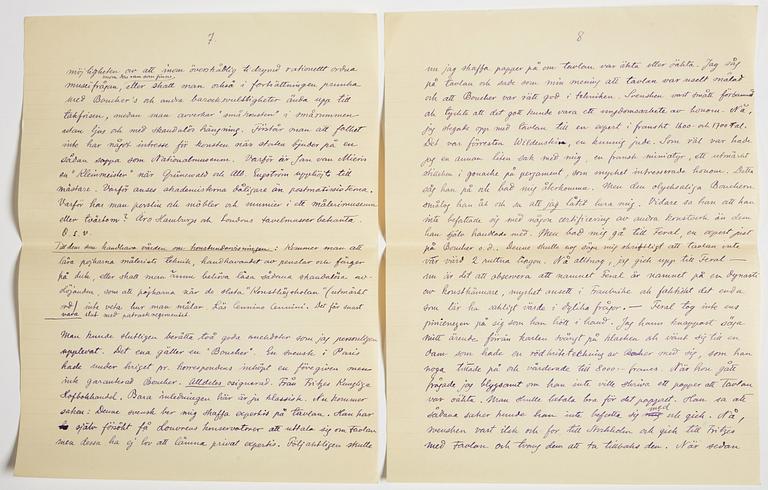 7.
möjligheten av att inom överskådlig tidrymd rationellt ordna
museifrågan, eller skall man också i fortsättningen prunka
med Boucher's och andra barockvulktigheter ända upp till
takfrisen, medan man avverkar "småkonsten" i smårummen
uden ljus och med skandalös hängning. Förstår man att folket
inte har något intresse för konsten när staten bjuder på en
sådan soppa som Nationalmuseum. Varför är Jan van Mieris
en "Kleinmeister" när Grünewald och Alb. Engström upphöjts till
mästare. Varför anses akademikerna dåligare än postmatissiskerna.
Varför har man porslin och möbler och mumier i ett målerimuseum
eller tvärtom? Äro Hamburgs och Londons tavelmassor behanta.
O.s.v.
Till den som handhava vården om konstundervisningen: Kommer man att
lära pojkarna måleriets teknik, handhavandet av penslar och färger
på duk, eller skall man ännu behöva läsa sådana skandalösa av-
slöjanden, som att pojkarna när de sluta "Konsthögskolan" (utmärkt
ord) inte veta hur man målar. Läs Cennino Cennini. Det får snart
vara slut med patraskregementet.
Man kunde slutligen berätta två goda anekdoter som jag personligen
upplevat. Det ena gäller en "Boucher". En svensk i Paris
hade under kriget pr. korrespondens inköpt en förgiven men
inte garanterad Boucher. Alldeles osignerad. Från Fritzes Kungliga
Hofbokhandel. Bara inledningen här är ju klassisk. Nu kommer
saken: Denne svensk ber mig skaffa expertis på tavlan. Han har
själv försökt få Louvrens konservatorer att uttala sig om tavlan
men dessa ha ej lov att lämna privat expertis. Följaktligen skulle
8
nu jag skaffa papper på om tavlan var äkta eller oäkta. Jag såg
på tavlan och sade som min mening att tavlan var uselt målad
och att Boucher var rätt god i tekniken. Svensken vart smått förbannad
och tyckte att det gott kunde vara ett ungdomsarbete av honom. Nå,
jag stegade opp med tavlan till en expert i franskt 1600- och 1700-tal.
Det var förresten Wildenstein, en kunnig jude. Som väl var hade
jag en annan liten sak med mig, en fransk miniatyr, ett utmärkt
arbete i gouache på pergament, som mycket intresserade honom. Detta
såg han på och bad mig återkomma. Men den olycksaliga Bouchern
smålog han åt och sa att jag låtit lura mig. Vidare sa han att han
inte befattade sig med någon certifiering av andra konstverk än dem
han själv handlade med. Men bad mig gå till Feral, en expert just
på Boucher o.d. Denne skulle nog säga mig skriftligt att tavlan inte
var värd 2 ruttna lingon. Nå alltnog, jag gick upp till Feral —
nu är det att observera att namnet Feral är namnet på en dynasti
av konstkännare, mycket ansett i Frankrike och faktiskt det enda
som lär ha sakligt värde i dylika frågor. — Feral tog inte ens
pincenezen på sig som han höll i hand. Jag hann knappast säga
mitt ärende förrän karlen tvingt på klacken och vänt sig till en
dam som hade en rödkritsteckning av Boucher med sig, som han
noga tittade på och värderade till 8000— francs. När hon gått
frågade jag blygsamt om han inte ville skriva ett papper att tavlan
var oäkta. Man skulle betala bra för det papperet. Han sa att
sådana saker kunde han inte befatta sig med och gick. Nå,
svensken vart ilsk och for till Stockholm och gick till Fritzes
med tavlan och tvang dem att ta tillbaks den. När sedan